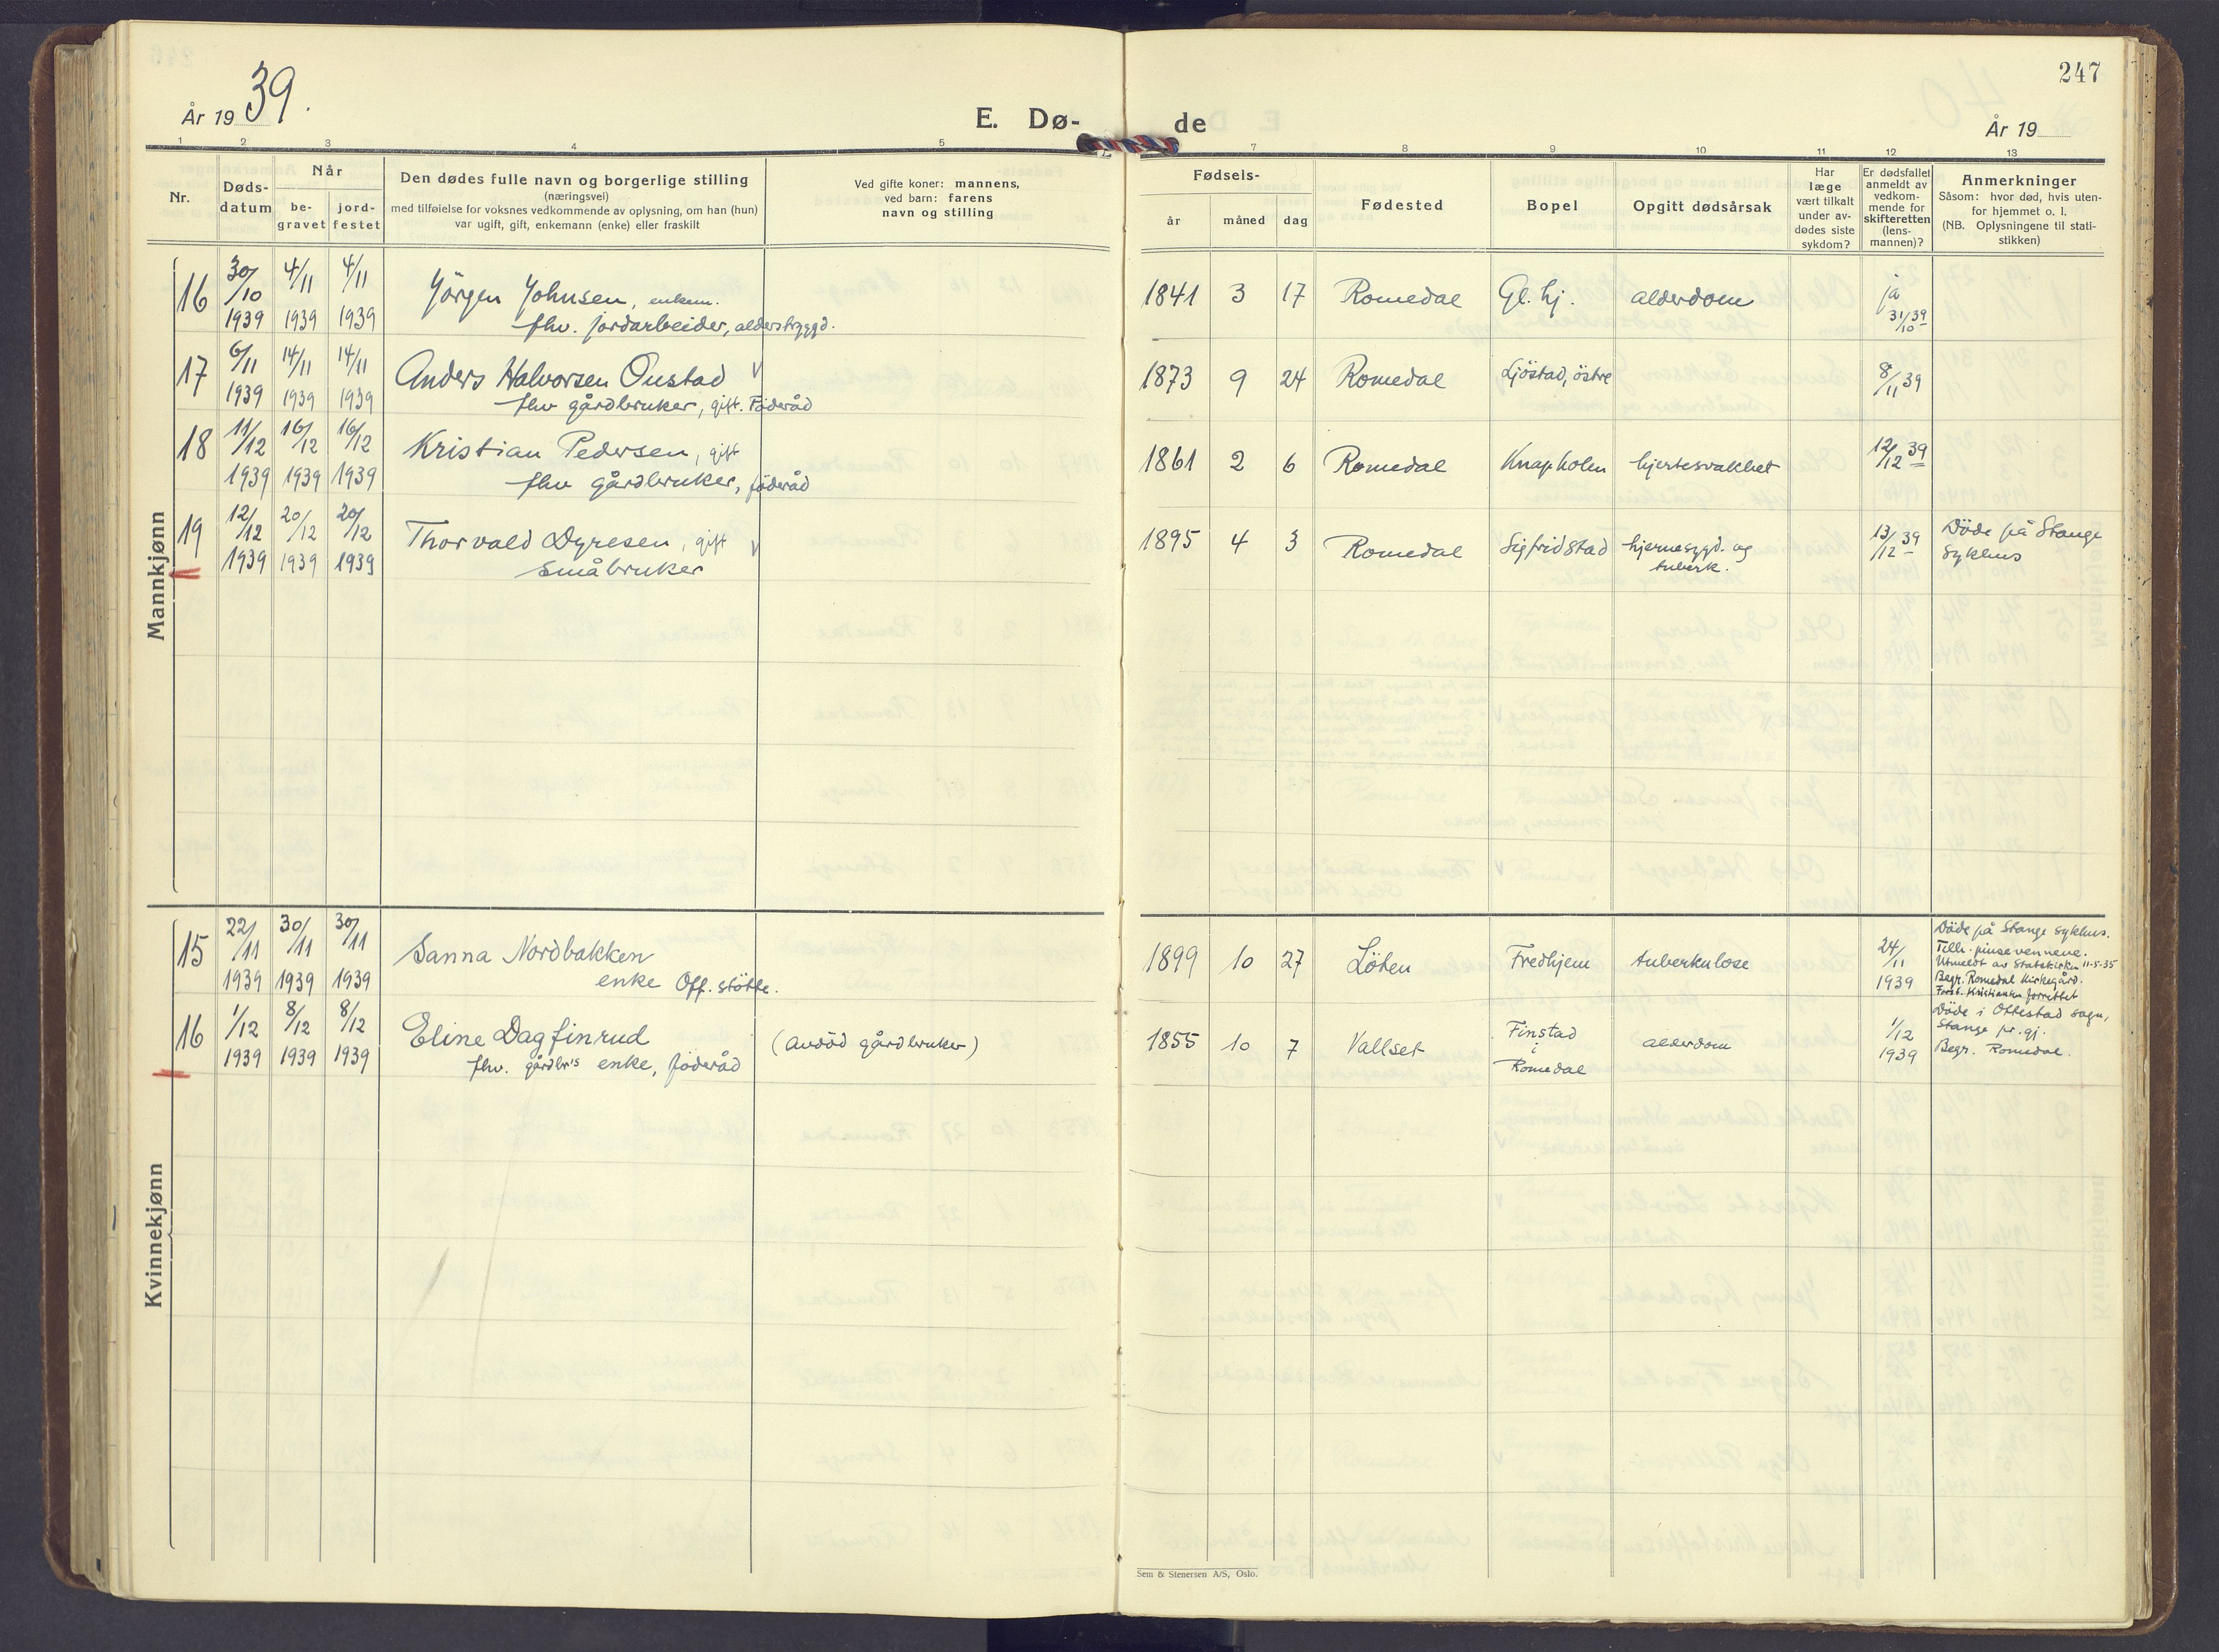 247
År 19 39.
E. Dø-
de
År 19
1 2 3 4 5
7 8 9 10 11 12 13
Nr.
Døds-
datum
Når
be-
gravet
jord-
festet
Den dødes fulle navn og borgerlige stilling
(næringsvei)
med tilføielse for voksnes vedkommende av oplysning, om han (hun)
var ugift, gift, enkemann (enke) eller fraskilt
Ved gifte koner: mannens,
ved barn: farens
navn og stilling
Fødsels-
år måned dag
Fødested
Bopel
Opgitt dødsårsak
Har
læge
vært tilkalt
under av-
dødes siste
sykdom?
Er dødsfallet
anmeldt av
vedkom-
mende for
skifteretten
(lens-
mannen)?
Anmerkninger
Såsom: hvor død, hvis uten-
for hjemmet o. l.
(NB. Oplysningene til stati-
stikken)
Mannkjønn
16 30/10 1939 4/11 1939 4/11 1939
Jörgen Johnsen, enkem.
fhv. jordarbeider, alderstrygd.
1841 3 17 Romedal Gl. hj. alderdom ja 31/10 39
17 6/11 1939 14/11 1939 14/11 1939
Anders Halvorsen Oustad v
fhv gårdbruker, gift. Föderåd
1873 9 24 Romedal Ljöstad, östre 8/11 39
18 11/12 1939 16/12 1939 16/12 1939
Kristian Pedersen, gift
fhv gårdbruker, föderåd
1861 2 6 Romedal Knapholen hjertesvakhet 12/12 39
19 12/12 1939 20/12 1939 20/12 1939
Thorvald Dyresen, gift v
Småbruker
1895 4 3 Romedal Sigfridstad hjernesygd. og
tuberk.
13/12 39
Döde på Stange
Sykhus
Kvinnekjønn
15 22/11 1939 30/11 1939 30/11 1939
Sanna Nordbakken
enke Off. stötte.
1899 10 27 Löten Fredhjem tuberkulose 24/11 1939
Döde på Stange sykhus.
Tilh. pinsevennene.
Utmeldt av Statskirken 11-5-35
Begr. Romedal Kirkegård.
Forst. Kristiansen forrettet
16 1/12 1939 8/12 1939 8/12 1939
Eline Dagfinrud
fhv. gårdbr's enke, föderåd
(avdöd gårdbruker)
1855 10 7 Vallset
Finstad
i
Romedal
alderdom
1/12 1939
Döde i Ottestad sogn,
Stange pr. gj.
Begr. Romedal.
Sem & Stenersen A/S, Oslo.